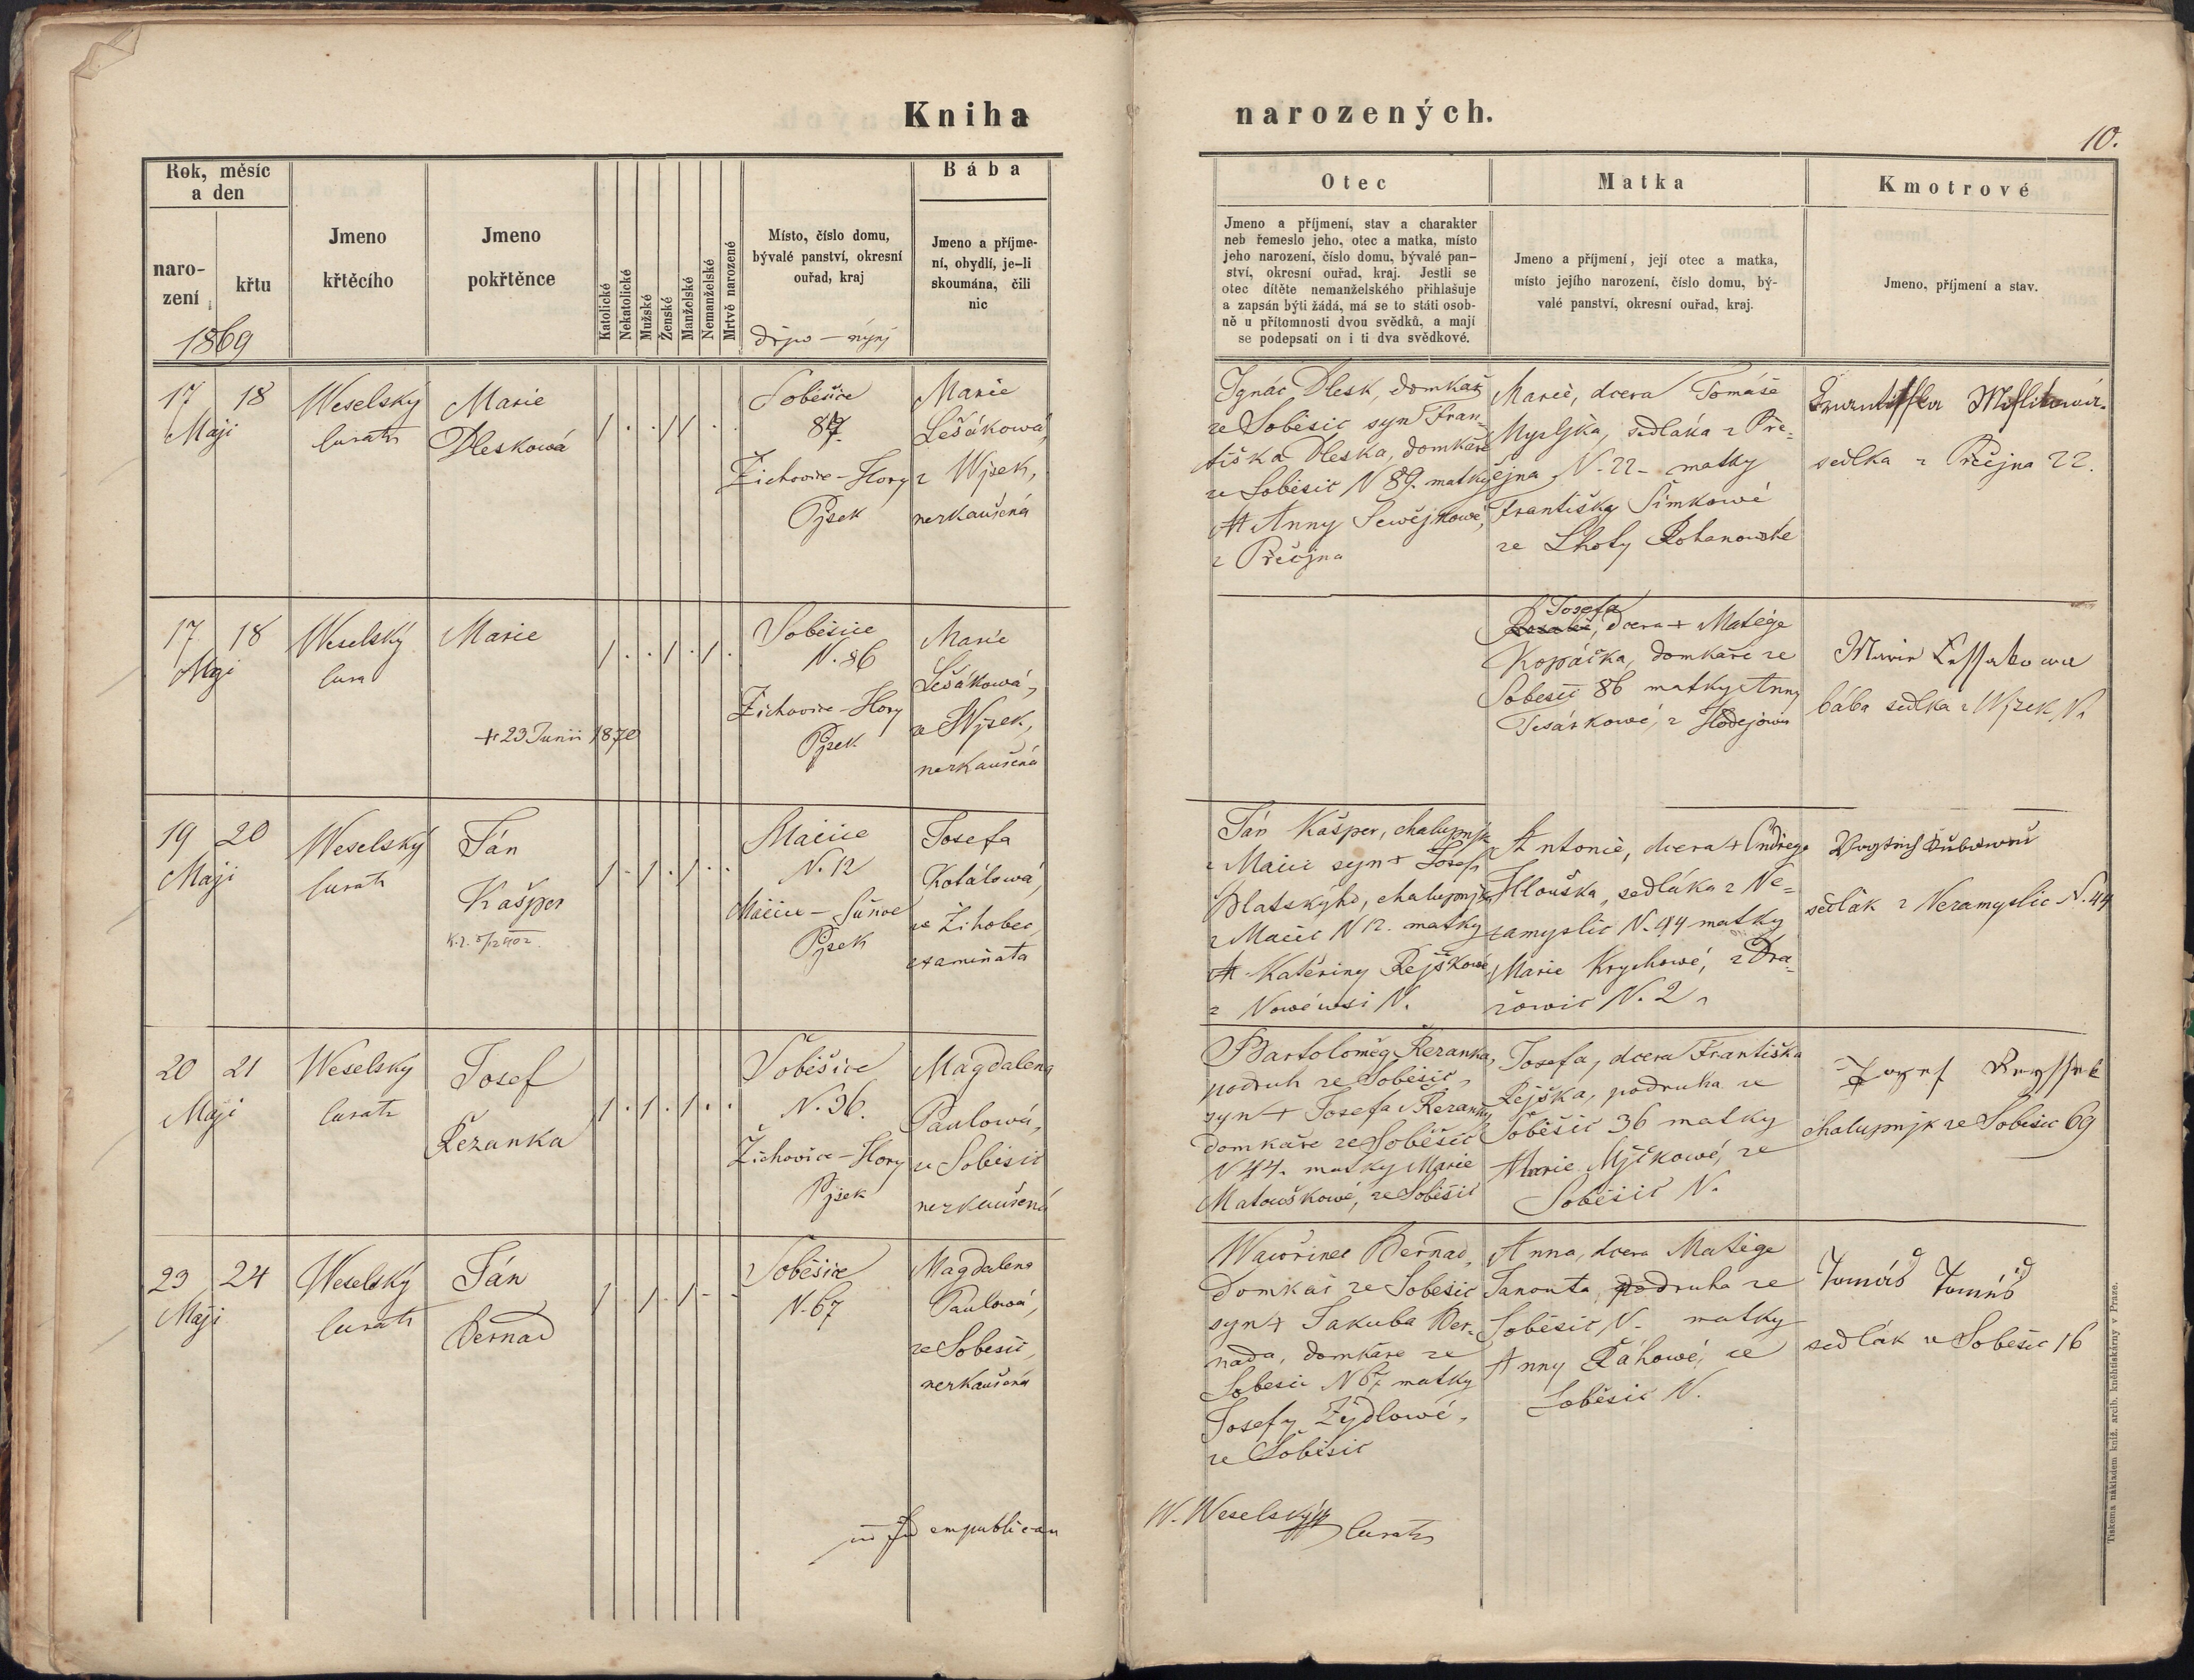 Kniha narozených.
10.
Rok, měsíc
a den
naro-
zení
křtu
1869
Jmeno
křtěcího
Jmeno
pokřtěnce
Katolické
Nekatolické
Mužské
Ženské
Manželské
Nemanželské
Mrtvě narozené
Místo, číslo domu,
bývalé panství, okresní
ouřad, kraj
dřjw – nynj
Bába
Jmeno a příjme-
ní, obydlí, je-li
skoumána, čili
nic
Otec
Jmeno a příjmení, stav a charakter
neb řemeslo jeho, otec a matka, místo
jeho narození, číslo domu, bývalé pan-
ství, okresní ouřad, kraj. Jestli se
otec dítěte nemanželského přihlašuje
a zapsán býti žádá, má se to státi osob-
ně u přítomnosti dvou svědků, a mají
se podepsati on i ti dva svědkové.
Matka
Jmeno a příjmení, její otec a matka,
místo jejího narození, číslo domu, bý-
valé panství, okresní ouřad, kraj.
Kmotrové
Jmeno, příjmení a stav.
17 18
Maji
Weselský
Curatr
Marie
Dlesková
Soběšice
87.
Žichovice – Hory
Pjsek
Marie
Lešáková,
z Wjsek,
nezkaušená
Ignác Dlesk, domkář
ze Soběšic syn Fran-
tiška Dleska, domkáře
ze Soběšic N 89. matky
Anny Sewějkowé,
z Přečjna
Marie, dcera Tomáše
Mysljka, sedláka z Pře-
čjna, N. 22 – matky
Františky Šimkowé
ze Lhoty Rohanowské
sedlka z Přečjna 22.
17 18
Maji
Weselský
Cura
Marie
+ 23 Junii 1870
Soběšice
N. 86
Žichovice – Hory
Pjsek
Marie
Lešáková,
z Wjsek,
nezkaušená
Josefa
dcera + Matěge
Kopáčka, domkáře ze
Soběšic 86 matky Anny
Tesárkowé, z Hodějowa
Marie Leššakowa
bába sedlka z Wjsek N.
19 20
Maji
Weselský
Curatr
Ján
Kašper
Mačice
N. 12
Mačice – Sušice
Pjsek
Josefa
Kotálowá,
ze Žihobec,
examinata
Ján Kašper, chalupnjk
z Mačic syn + Josefa
Blatskýho, chalupnjka
z Mačic N 12. matky
+ Kateřiny Rejškowé
z Nowéwsi N.
Antonie, dcera + Ondřege
Hlouška, sedláka z Ne-
zamyslic N. 44 matky
Marie Krychowé, z Dra-
žowic N. 2
sedlák z Nezamyslic N. 44
20 21
Maji
Weselský
Curatr
Josef
Řezanka
Soběšice
N. 36.
Žichovice – Hory
Pjsek
Magdalena
Paulowá,
ze Soběšic
nezkaušená
Bartoloměg Řezanka,
podruh ze Soběšic,
syn + Josefa Řezanky
domkáře ze Soběšic
N 44. matky Marie
Matouškowé, ze Soběšic
Josefa, dcera Františka
Rejška, podruha ze
Soběšic 36 matky
Marie Mjčkowé, ze
Soběšic N.
Jozef Reyssek
chalupnjk ze Soběšic 69
23 24
Maji
Weselský
Curatr
Ján
Bernad
Soběšice
N. 67
Magdalena
Paulowá,
ze Soběšic,
nezkaušená
Wawřinec Bernad,
domkář ze Soběšic
syn + Jakuba Ber-
nada, domkáře ze
Soběšic N 67 matky
Josefy Žýdlowé,
ze Soběšic
Anna, dcera Matěge
Janouta, podruha ze
Soběšic N. matky
Anny Řáhowé, ze
Soběšic N.
Tomáš Tomáš
sedlák ze Soběšic 16
W. Weselský
Curatr
Tiskem a nákladem kníž. arcib. kněhtiskárny v Praze.